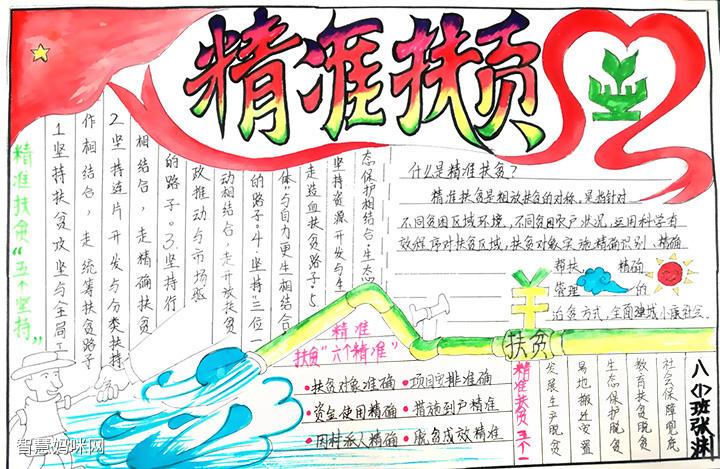 精准扶贫
精准扶贫"五个坚持"
1坚持扶贫攻坚与全局工
作相结合,走统筹扶贫路子
2坚持连片开发与分类扶持
相结合,走精确扶贫
的路子。3坚持行
政推动与市场驱
动相结合,走开放扶贫
的路子。4坚持"三位一
体"与自力更生相结合
走造血扶贫路子。5
坚持资源开发与生
态保护相结合·生态
什么是精准扶贫?
精准扶贫是粗放扶贫的对称,是指针对
不同贫困区域环境,不同贫困农户状况,运用科学有
效程序对扶贫区域,扶贫对象实施精确识别、精确
帮扶、精确
管理的
治贫方式,全面建成小康社会。
扶贫
精准
扶贫"六个精准"
•扶贫对象准确•项目安排准确
•资金使用精确•措施到户精准
•因村派人精确•脱贫成效精准
精准扶贫五个一
发展生产脱贫
易地搬迁安置
生态保护脱贫
教育扶贫脱贫
社会保障兜底
八(1)班张淋
智慧妈咪网